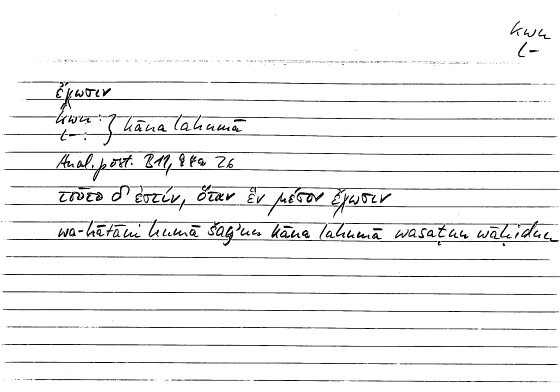 kwn
l-
ἔχωσιν
kwn : } kāna lahumā
l- :
Anal. post. B11, 94a 26
τοῦτο δ' ἐστίν, ὅταν ἓν μέσον ἔχωσιν
wa-hātāni humā kāna lahumā wasaṭun wāḥidun